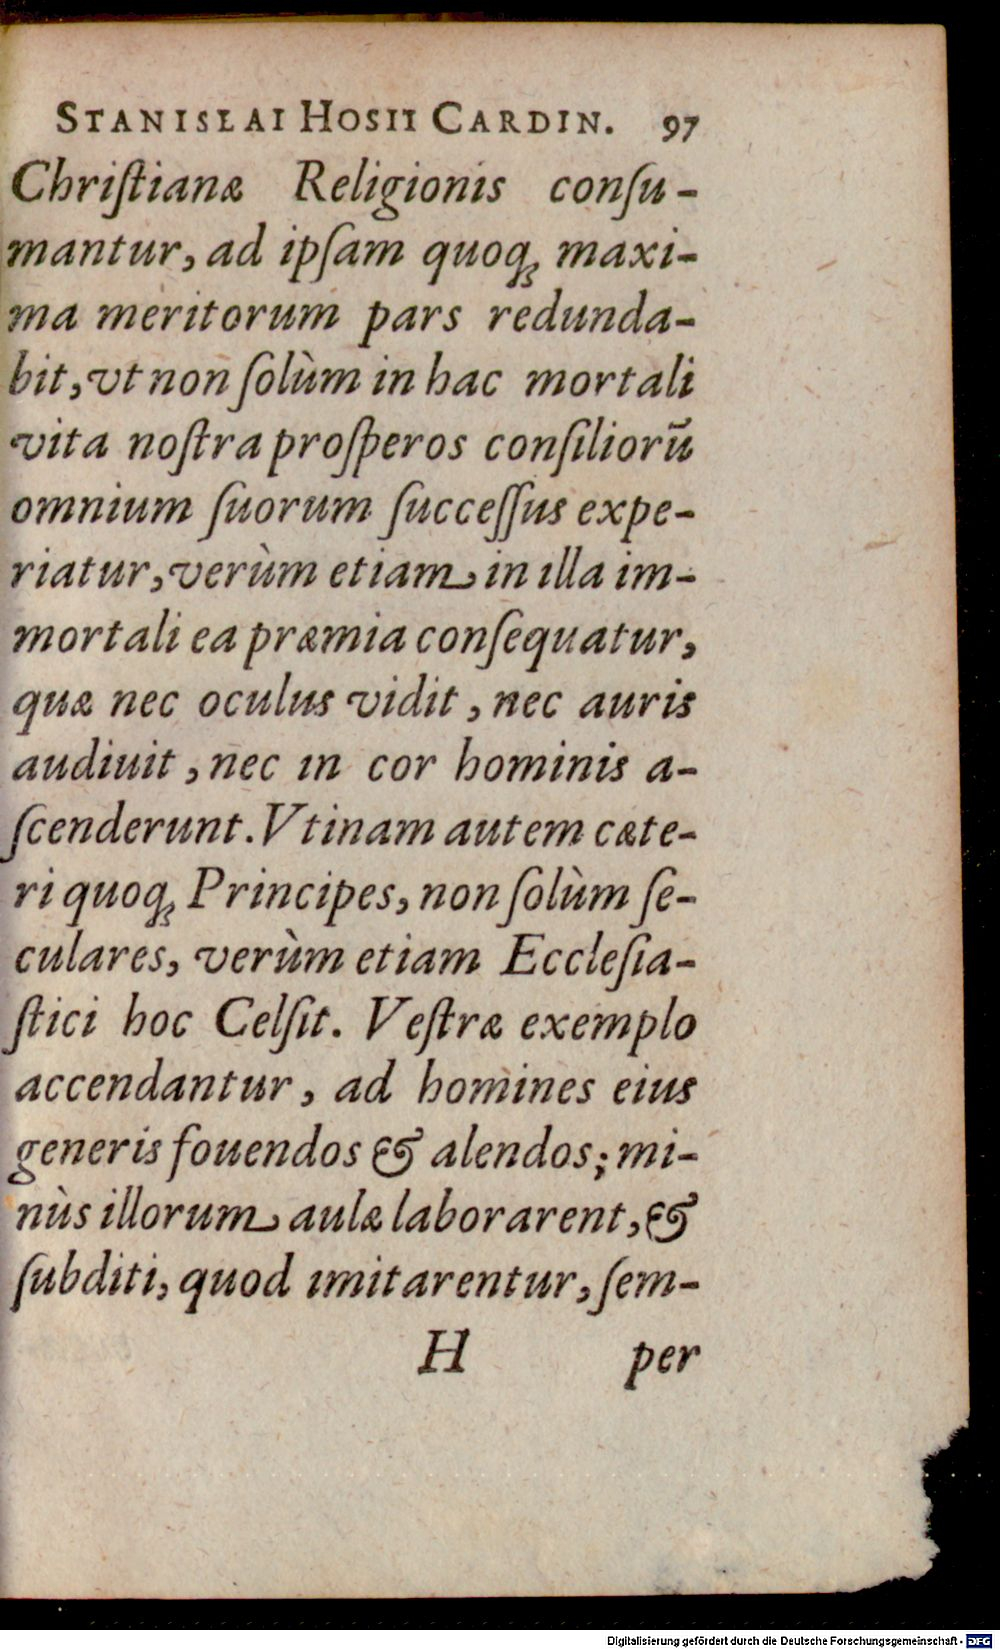 STANISŁAI HOSII CARDIN. 97
Chriſtianæ Religionis conſu-
mantur, ad ipſam quoqꝫ maxi-
ma meritorum pars redunda-
bit, vt non ſolùm in hac mortali
vita noſtra proſperos conſiliorū
omnium ſuorum ſucceſſus expe-
riatur, verùm etiam in illa im-
mortali ea præmia conſequatur,
quæ nec oculus vidit, nec auris
audiuit, nec in cor hominis a-
ſcenderunt. Vtinam autem cæte-
ri quoqꝫ Principes, non ſolùm ſe-
culares, verùm etiam Eccleſia-
ſtici hoc Celſit. Veſtræ exemplo
accendantur, ad homines eius
generis fouendos & alendos; mi-
nùs illorum aulæ laborarent, &
ſubditi, quod imitarentur, ſem-
H per
Digitalisierung gefördert durch die Deutsche Forschungsgemeinschaft - DFG